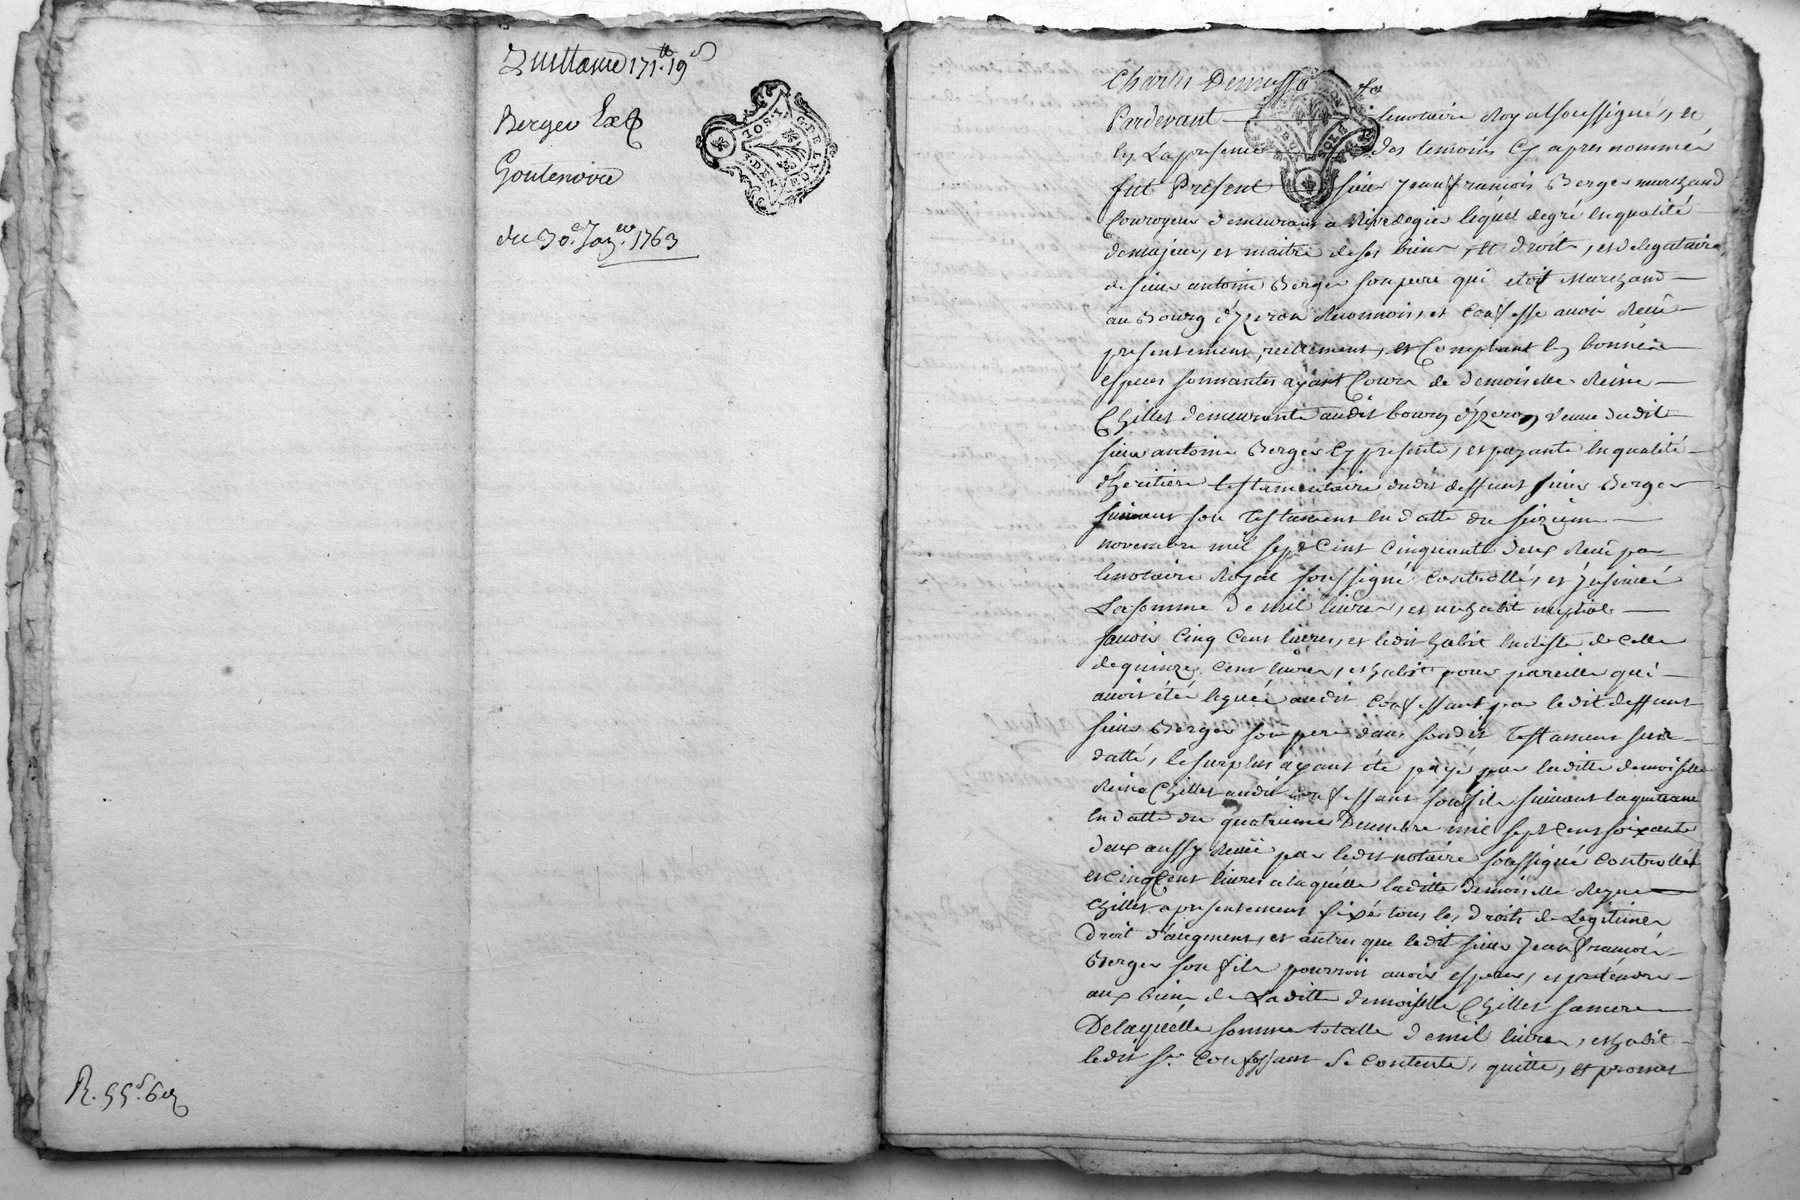 Quittance 171.tt 19 s
Berger Ex
Goutenoire
du 30.e Janer. 1763
R. 55 s. 6 d
Charles Demusset
Pardevant le notaire Royal soussigné, et
En La presence des temoins Cy apres nommés
fut Present sieur Jean françois Berger marchand
Couroyeur demeurant a Rivedegier lequel degré En qualité
de majeur, et maitre de ses biens, et droits, et delegataire
de sieur antoine Berger son pere qui etoit Marchand
au Bourg d'yzeron Reconnoist, et Confesse avoir Reçu
presentement, reellement, et Comptant En bonnes
especes sonnantes ayant Cours de demoiselle Reine
Chillet demeurante audit bourg d'yzeron veuve dudit
sieur antoine Berger Cy presente, et payante En qualité
d'heritiere testamentaire dudit deffunt sieur Berger
suivant son testament En datte du seizieme
novembre mil sept Cent Cinquante deux Reçu par
le notaire Royal soussigné Controllé, et Insinué
La somme de mil livres, et un habit nuptial
savoir Cinq Cent livres, et ledit habit En reste de Celle
de quinze Cent livres, et habit pour pareille qui
avoit été legué audit Confessant par ledit deffunt
sieur Berger son pere dans sondit testament sus
datté, le surplus ayant été payé par laditte demoiselle
Reine Chillet audit Confessant son fils suivant la quittance
En datte du quatrieme Decembre mil sept Cent soixante
deux aussy Reçue par ledit notaire soussigné Controllée
et Cinq Cent livres a laquelle laditte demoiselle Reyne
Chillet a presentement fixé tous les droits de Legitime
Droit d'augment, et autres que ledit sieur Jean françois
Berger son fils pourroit avoir esperer, et pretendre
aux biens de Laditte demoiselle Chillet sa mere
De laquelle somme totalle de mil livres, et habit
ledit sr. Confessant Se Contente, quitte, et promet